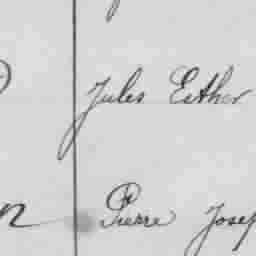 Jules Esther
Pierre Josep